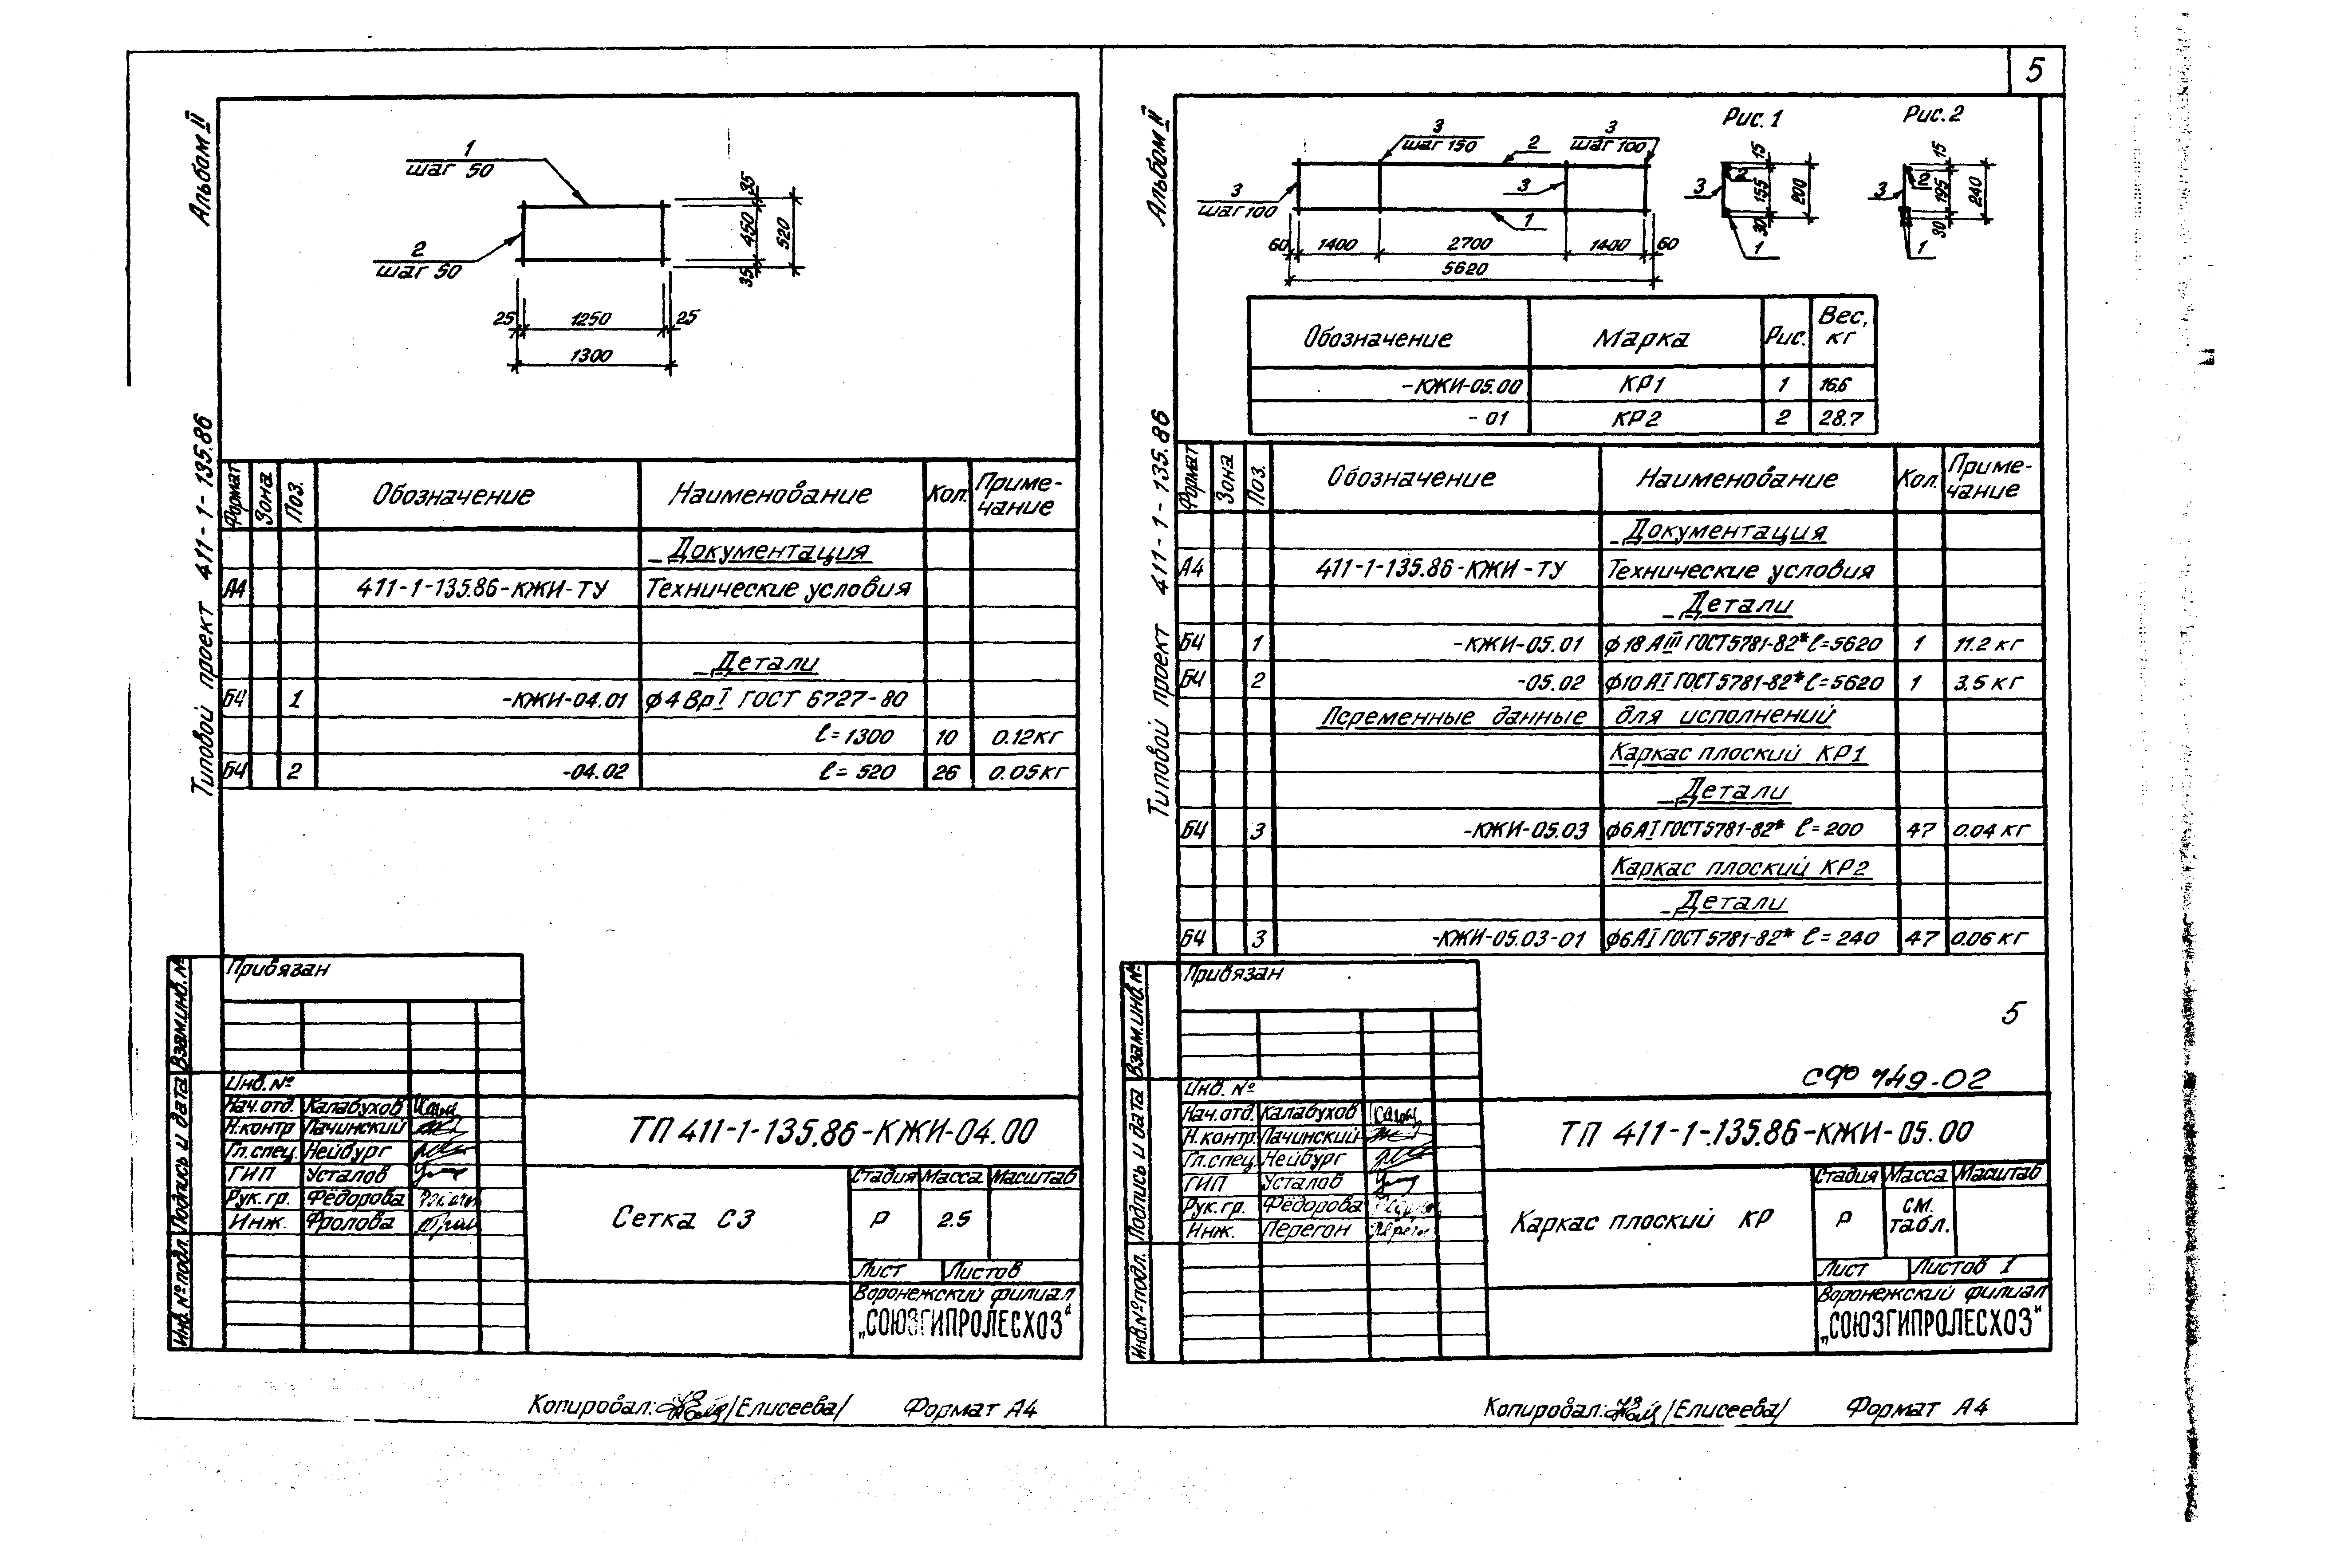 5
Альбом II
Типовой проект 411-1-135.86
1
шаг 50
2
шаг 50
35
450
35
520
25
1250
25
1300
Формат
Зона
Поз.
Обозначение
Наименование
Кол.
Приме-
чание
Документация
А4 411-1-135.86-КЖИ-ТУ Технические условия
Детали
БЧ 1 -КЖИ-04.01 ф4 ВрI ГОСТ 6727-80
ℓ=1300 10 0.12кг
БЧ 2 -04.02 ℓ=520 26 0.05кг
Привязан
Инв. №
Взам.инв.№
Подпись и дата
Инв.№подл.
Нач.отд. Калабухов
Н.контр Лачинский
Гл.спец. Нейбург
ГИП Усталов
Рук.гр. Фёдорова
Инж. Фролова
ТП 411-1-135.86-КЖИ-04.00
Сетка С3
Стадия Масса Масштаб
Р 2.5
Лист Листов
Воронежский филиал
„СОЮЗГИПРОЛЕСХОЗ"
Копировал: /Елисеева/ Формат А4
Альбом II
Типовой проект 411-1-135.86
3
шаг 100
3
шаг 150
2
3
шаг 100
3
1
60
1400
2700
1400
60
5620
Рис. 1
15
155
30
200
3
2
1
Рис. 2
15
195
30
240
3
2
1
Обозначение Марка Рис. Вес,
кг
-КЖИ-05.00 КР1 1 16.6
-01 КР2 2 28.7
Формат
Зона
Поз.
Обозначение
Наименование
Кол.
Приме-
чание
Документация
А4 411-1-135.86-КЖИ-ТУ Технические условия
Детали
БЧ 1 -КЖИ-05.01 ф18 АIII ГОСТ5781-82* ℓ=5620 1 11.2 кг
БЧ 2 -05.02 ф10 АI ГОСТ5781-82* ℓ=5620 1 3.5 кг
Переменные данные для исполнений
Каркас плоский КР1
Детали
БЧ 3 -КЖИ-05.03 ф6 АI ГОСТ5781-82* ℓ=200 47 0.04 кг
Каркас плоский КР2
Детали
БЧ 3 -КЖИ-05.03-01 ф6 АI ГОСТ5781-82* ℓ=240 47 0.06 кг
Привязан
Инв. №
5
СФ 749-02
Взам.инв.№
Подпись и дата
Инв.№подл.
Нач.отд. Калабухов
Н.контр. Лачинский
Гл.спец. Нейбург
ГИП Усталов
Рук.гр. Фёдорова
Инж. Перегон
ТП 411-1-135.86-КЖИ-05.00
Каркас плоский КР
Стадия Масса Масштаб
Р см.
табл.
Лист Листов 1
Воронежский филиал
„СОЮЗГИПРОЛЕСХОЗ"
Копировал: /Елисеева/ Формат А4